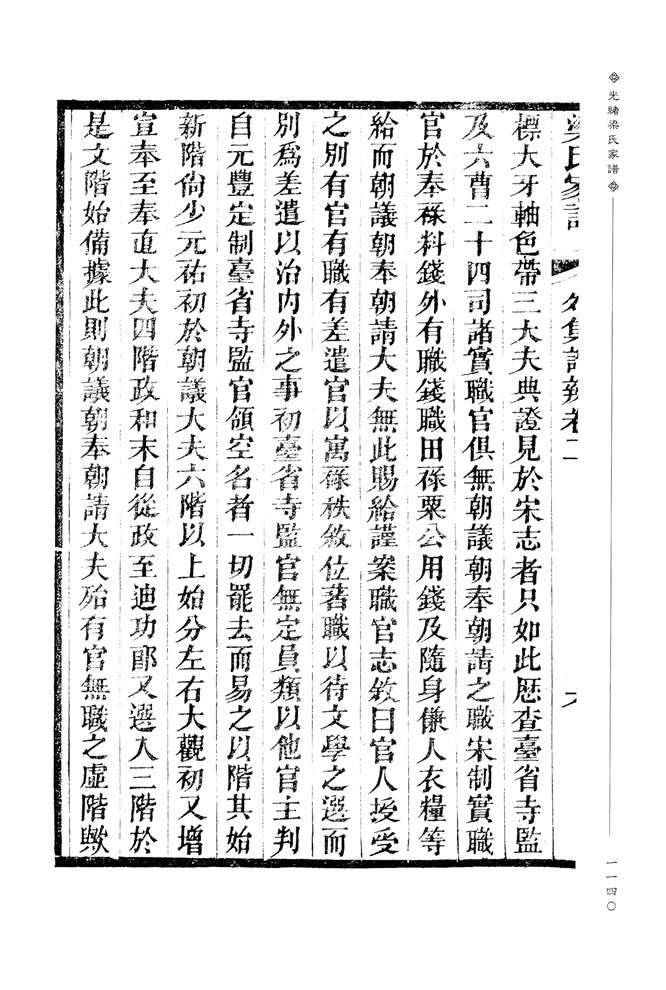 光緒梁氏家譜
一一四〇
梁氏家譜
卷二
標大牙軸色帶三大夫典證見於宋志者只如此歷查臺省寺監
及六曹二十四司諸實職官俱無朝議朝奉朝請之職宋制實職
官於奉祿料錢外有職錢職田祿粟公用錢及隨身傔人衣糧等
給而朝議朝奉朝請大夫無此賜給謹案職官志敘曰官人授受
之別有官有職有差遣官以寓祿秩敘位著職以待文學之選而
別爲差遣以治內外之事初臺省寺監官無定員類以他官主判
自元豐定制臺省寺監官領空名者一切罷去而易之以階其始
新階尙少元祐初於朝議大夫六階以上始分左右大觀初又增
宣奉至奉直大夫四階政和末自從政至迪功郞又選人三階於
是文階始備據此則朝議朝奉朝請大夫殆有官無職之虛階歟